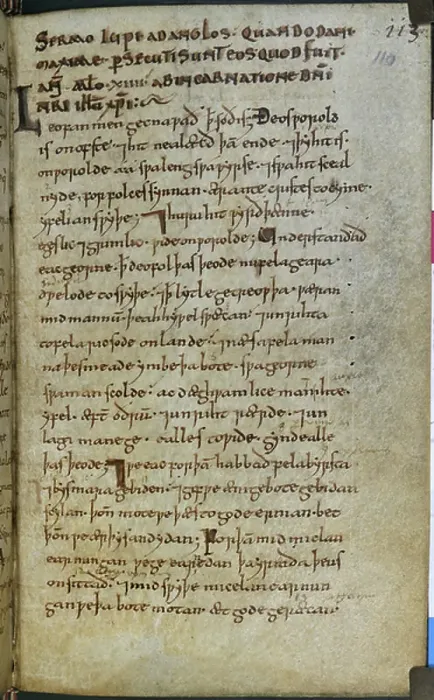 SERMO LUPI AD ANGLOS. QUANDO DANI
MAXIME PERSECUTI SUNT EOS QUOD FUIT.
AN̄. Mill̄o. XIIII. AB INCARNATIONE DN̄I
NRI IH̄U XP̄I:
Leofan men gecnawað þ̄ soð is; Ðeos worold
is on ofste. ⁊ hit nealæcð þā ende. ⁊ þy hit is
on worolde aa swa leng swa wyrse. ⁊ swa hit sceal
nyde. for folces synnan. ær antecristes tocyme.
yfelian swyþe; ⁊ huru hit wyrð þænne
egeslic ⁊ grimlic. wide on worolde; Understandað
eac georne. þ̄ deofol þas þeode nu fela geara
dwelode to swyþe. ⁊ þ̄ lytle getreowþa wæran
mid mannū. þeah hy wel spæcan. ⁊ unrihta
to fela ricsode on lande. ⁊ næs a fela man
na þe smeade ymbe þa bote. swa georne
swa man scolde. ac dæghwamlice man ihte.
yfel. æft̄ oðrū. ⁊ unriht rærde. ⁊ un
laga manege. ealles to wide. gynd ealle
þas þeode; ⁊ we eac forþā habbað fela byrsta
⁊ bysmara gebiden. ⁊ gyf we ænige bote gebidan
scylan. þon̄ mote we þæs to gode ernian bet
þon̄ we ær þysan dydan; Forþā mid miclan
earnungan we geearnedan þa yrmða þe us
onsittað. ⁊ mid swyþe micelan earnun
gan we þa bote motan æt gode geræcan